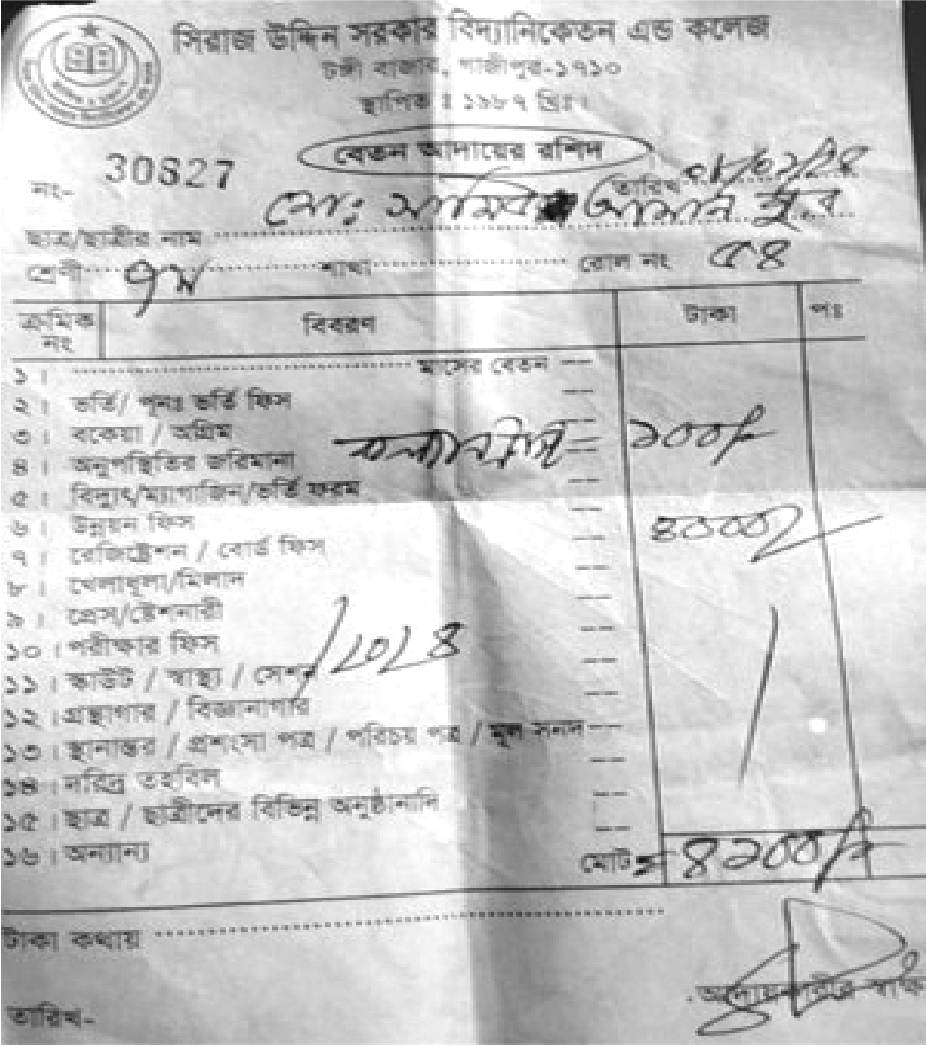 সিরাজ উদ্দিন সরকার বিদ্যানিকেতন এন্ড কলেজ
টঙ্গী বাজার, গাজীপুর-১৭১০
স্থাপিত ঃ ১৯৮৭ খ্রিঃ।
বেতন আদায়ের রশিদ
নং- 30827
তারিখ
মোঃ সামিন
ছাত্র/ছাত্রীর নাম
শ্রেণী ৭ম শাখা রোল নং ৫৪
ক্রমিক নং বিবরণ টাকা পঃ
১। মাসের বেতন
২। ভর্তি/ পুনঃ ভর্তি ফিস
৩। বকেয়া / অগ্রিম
৪। অনুপস্থিতির জরিমানা ১০০/-
৫। বিদ্যুৎ/ম্যাগাজিন/ভর্তি ফরম
৬। উন্নয়ন ফিস ৪০০০/
৭। রেজিষ্ট্রেশন / বোর্ড ফিস
৮। খেলাধূলা/মিলাদ
৯। প্রেস/ষ্টেশনারী
১০। পরীক্ষার ফিস
১১। স্কাউট / স্বাস্থ্য / সেশন
১২। গ্রন্থাগার / বিজ্ঞানাগার
১৩। স্থানান্তর / প্রশংসা পত্র / পরিচয় পত্র / মূল সনদ
১৪। দরিদ্র তহবিল
১৫। ছাত্র / ছাত্রীদের বিভিন্ন অনুষ্ঠানাদি
১৬। অন্যান্য
মোট = ৪১০০/-
টাকা কথায়
আদায়কারীর
তারিখ-